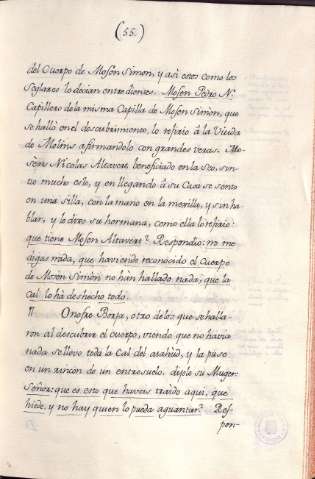 (55.)
del Cuerpo de Mosen Simon, y asi estos como los
Seglares lo decian entre dientes. Mosen Pedro N.
Capillero de la misma Capilla de Mosen Simon, que
se halló en el descubrimiento, lo refirio à la Viuda
de Molins afirmandolo con grandes veras. Mo-
sen Nicolas Altavert, beneficiado en la Seo, sin-
tio mucho esto, y en llegando à su Casa se sento
en una silla, con la mano en la mexilla, y sin ha-
blar, y le dixo su hermana, como ella lo refirio:
que tiene Mosen Altavert? Respondio: no me
digas nada, que haviendo reconocido el Cuerpo
de Mosen Simon no han hallado nada; que la
Cal lo há deshecho todo.
Onofre Borja, otro de los que se halla-
ron al descubrir el cuerpo, viendo que no havia
nada se llevo toda la Cal del atahud, y la puso
en un rincon de un entresuelo. dixole su Muger:
Señor: que es esto que haveis traido aqui, que
hiede, y no hay quien lo pueda aguantar? Res-
pon-